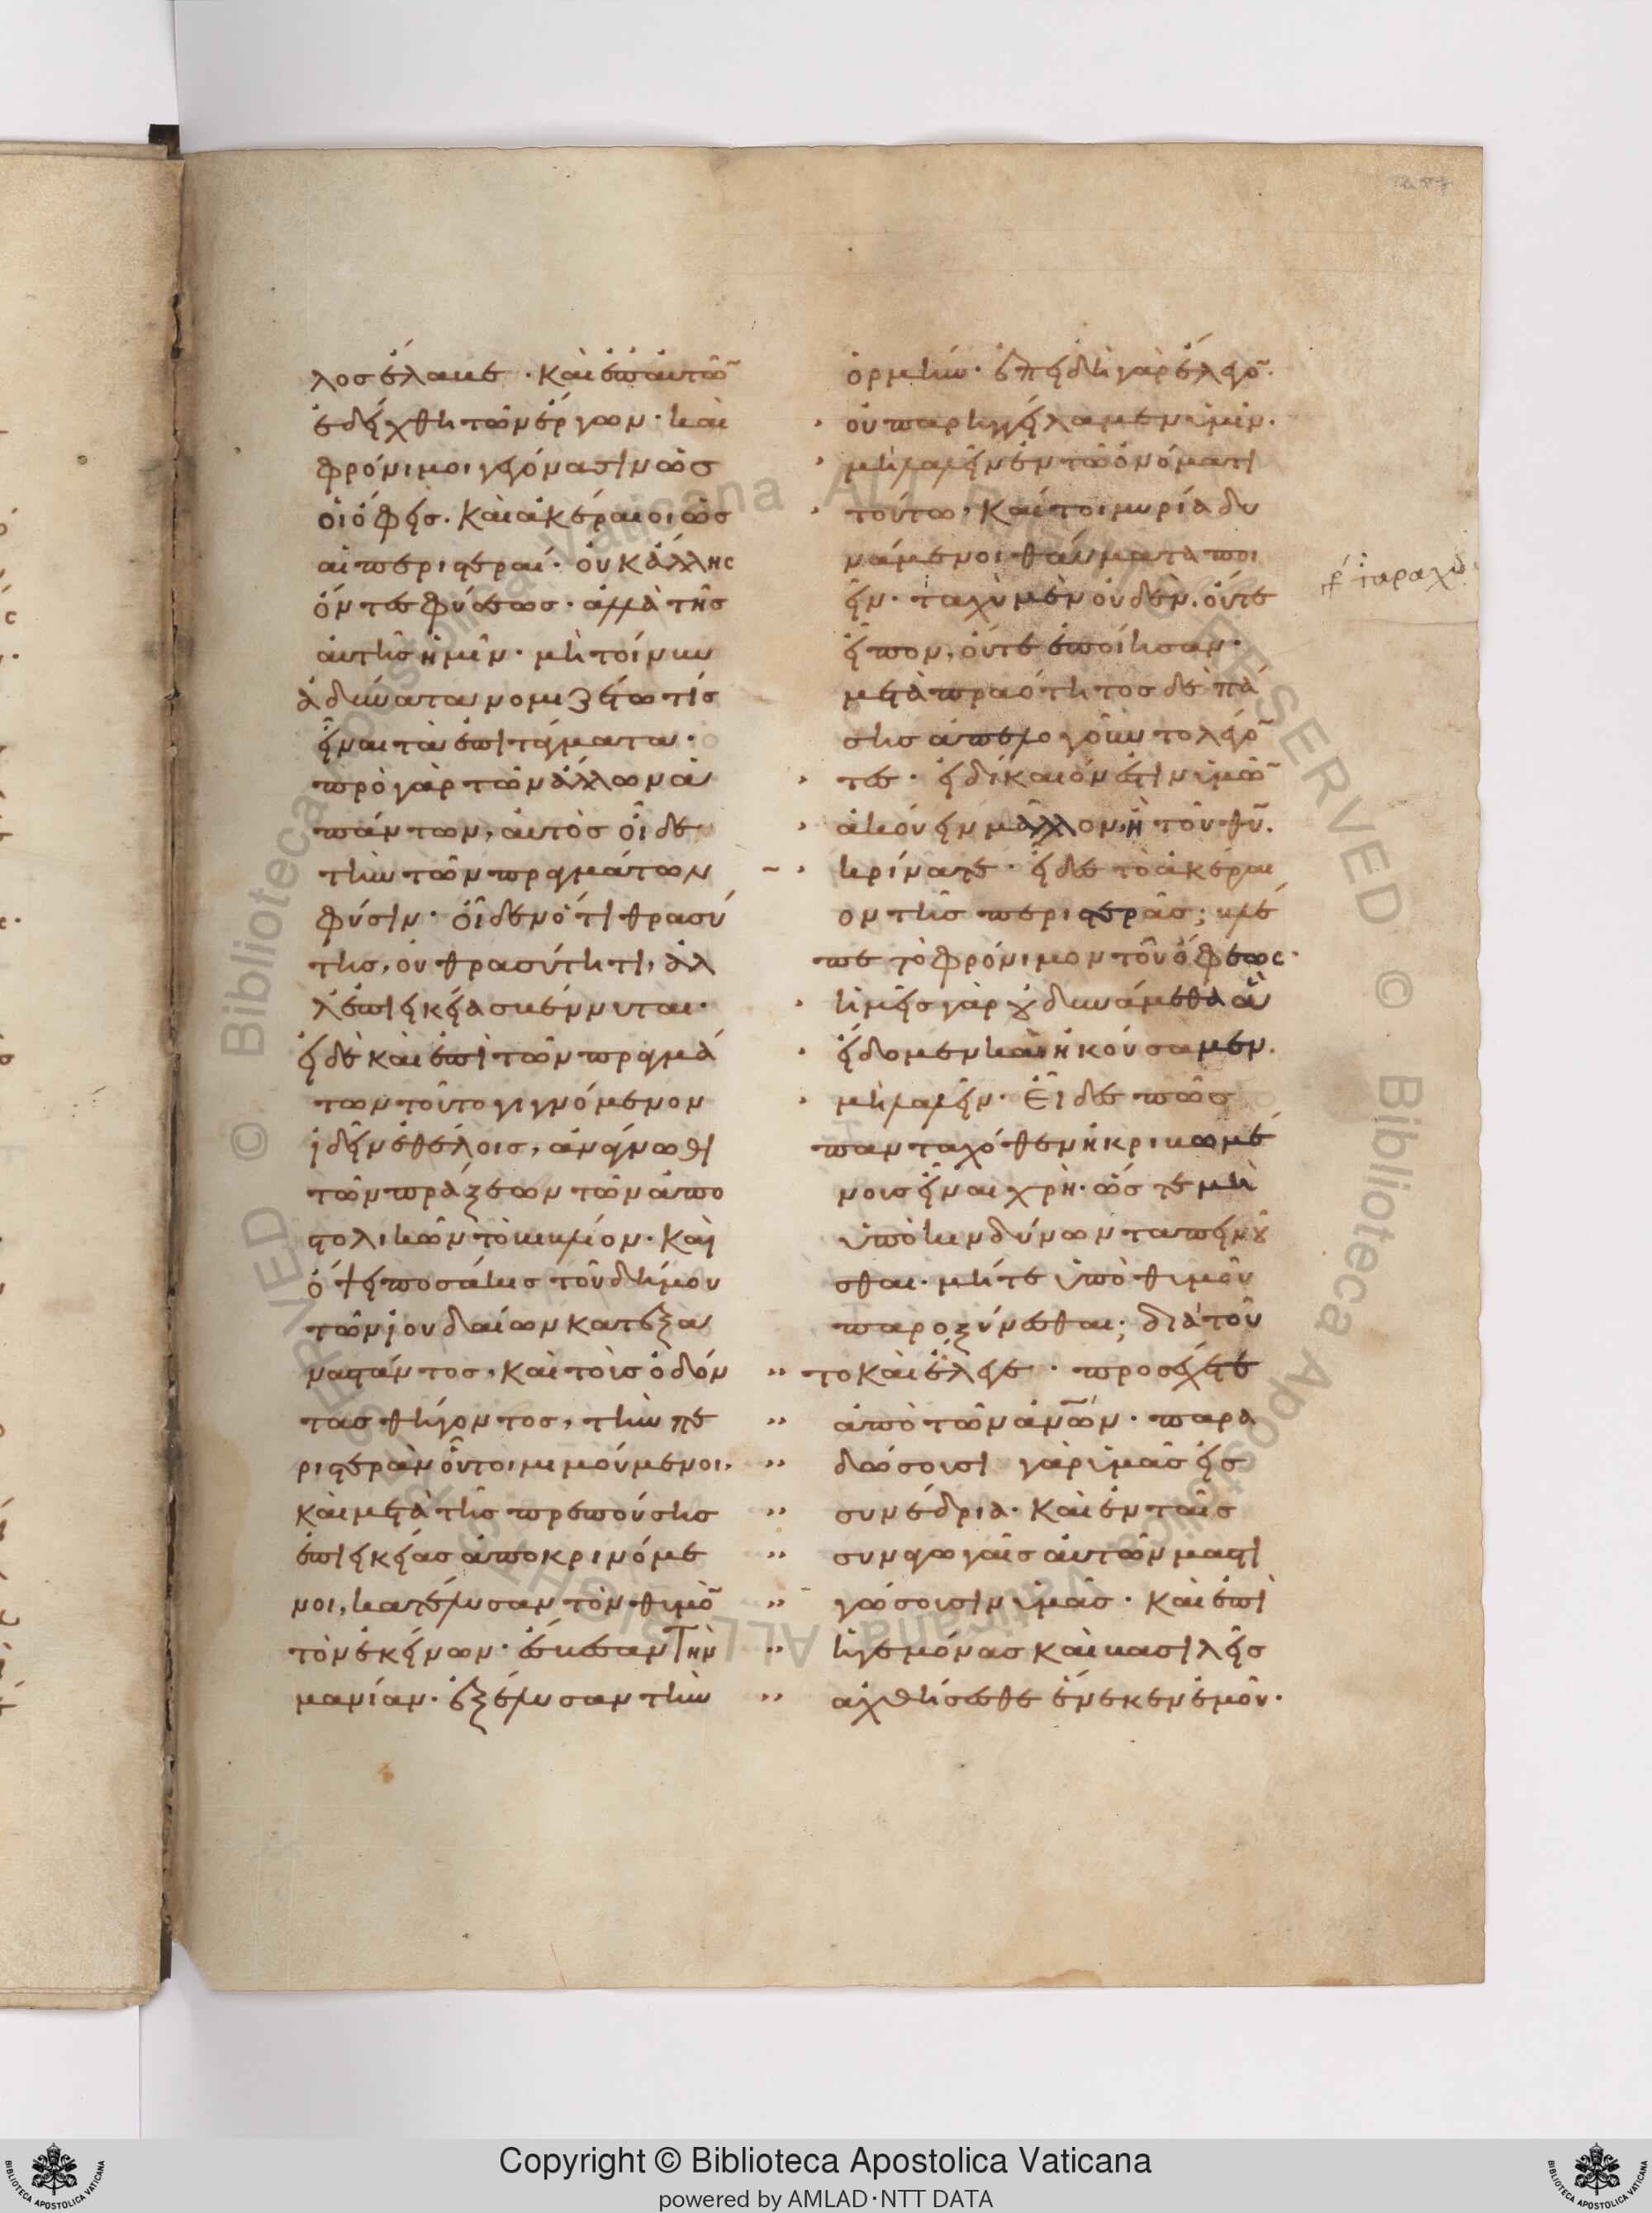 λοσ ἔλαβε · καὶ ἐπ' αὐτῶ̃
ἐδείχθη τῶν ἔργων · καὶ
φρόνιμοι γεγόνασιν ὡσ
οἱ ὄφεισ . καὶ ἀκέραιοι ὡσ
αἱ περιστεραί · οὐκ ἄλλησ
ὄντεσ φύσεωσ · ἀλλὰ τῆσ
αὐτῆσ ἡμῖν · μὴ τοίνυν
ἀδύνατα νομιζέτω τίσ
εἶναι τὰ ἐπιτάγματα ·
πρὸ γὰρ τῶν ἄλλων ἁ
πάντων, αὐτὸσ οἶδε
τὴν τῶν πραγμάτων
φύσιν · οἶδεν ὅτι θρασύ
τησ, οὐ θρασύτητι, ἀλ
λ' ἐπιεικεία σβέννυται ·
εἰ δὲ καὶ ἐπὶ τῶν πραγμά
των τοῦτο γιγνόμενον
ἰδεῖν ἐθέλοισ, ἀνάγνωθι
τῶν πράξεων τῶν ἀπο
στολικῶν τὸ βιβλίον · καὶ
ὄψει ποσάκισ τοῦ δήμου
τῶν ἰουδαίων κατεξα
ναστάντοσ · καὶ τοὺσ ὀδόν
τασ θήγοντοσ, τὴν πε
ριστερὰν οὗτοι μιμούμενοι,
καὶ μετὰ τῆσ πρεπούσησ
ἐπιεικείασ ἀποκρινόμε
νοι, κατέλυσαν τὸν θυμὸ̃
τὸν ἐκείνων · ἔσβεσαν τὴν
μανίαν · ἐξέλυσαν τὴν
ὁρμήν · ἐπειδὴ γὰρ ἔλεγο̃ ·
οὐ παρηγγείλαμεν ὑμῖν ·
μὴ λαλεῖν ἐν τῶ ὀνόματι
τούτω, καίτοι μυρία δυ
νάμενοι θαύματα ποι
εῖν · ταχὺ μὲν οὐδὲν . οὔτε
εἶπον, οὔτε ἐποίησαν ·
μετὰ πραότητοσ δὲ πά
σησ ἀπελογοῦντο λέγο̃
τεσ · εἰ δίκαιόν ἐστιν ὑμῶ̃
ἀκούειν μᾶλλον, ἢ τοῦ θυ̃ .
κρίνατε · εἶδεσ τὸ ἀκέραι
ον τῆσ περιστερᾶσ ; βλέ
πε τὸ φρόνιμον τοῦ ὄφεωσ ·
ἡμεῖσ γὰρ οὐ δυνάμεθα ἃ
εἴδομεν καὶ ἠκούσαμεν .
μὴ λαλεῖν · Εἶδεσ πῶσ
πανταχόθεν ἠκριβωμέ
νουσ εἶναι χρὴ · ὥστε μὴ
ὑπὸ κινδύνων ταπεινοῦ
σθαι · μήτε ὑπὸ θυμοῦ
παροξύνεσθαι ; διὰ τοῦ
το καὶ ἔλεγε · προσέχετε
ἀπὸ τῶν ἀνω̃ν · παρα
δώσουσι γὰρ ὑμᾶσ εἰσ
συνέδρια · καὶ ἐν ταῖσ
συναγωγαῖσ αὐτῶν μαστι
γώσουσιν ὑμᾶσ · καὶ ἐπὶ
ἡγεμόνασ καὶ βασιλεῖσ
ἀχθήσεσθε ἕνεκεν ἐμοῦ ·